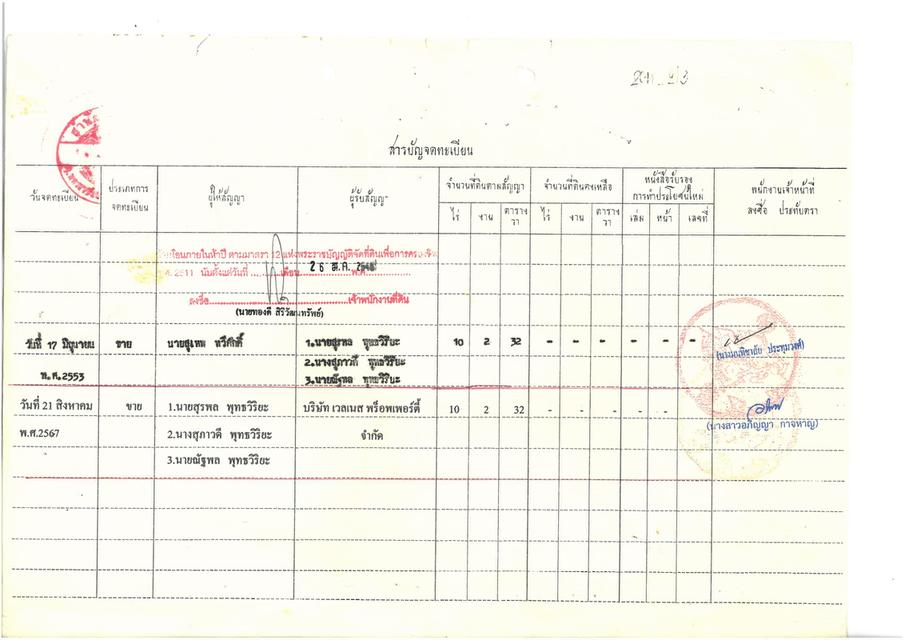 สารบัญจดทะเบียน
วันจดทะเบียน ประเภทการจดทะเบียน ผู้ให้สัญญา ผู้รับสัญญา จำนวนที่ดินตามสัญญา จำนวนที่ดินคงเหลือ หนังสือรับรองการทำประโยชน์ใหม่ พนักงานเจ้าหน้าที่ ลงชื่อ ประทับตรา
ไร่ งาน ตารางวา ไร่ งาน ตารางวา เล่ม หน้า เลขที่
โอนภายในห้าปี ตามมาตรา 12 แห่งพระราชบัญญัติจัดที่ดินเพื่อการครองชีพ
2511 นับตั้งแต่วันที่ ..... เดือน 26 ส.ค. พ.ศ.
ลงชื่อ เจ้าพนักงานที่ดิน
(นายทองดี สิริวัฒนทรัพย์)
วันที่ 17 มิถุนายน ขาย นายสุเทพ ทวีศักดิ์ 1.นายสุรพล พุทธวิริยะ 10 2 32 - - - - - -
2.นางสุภาวดี พุทธวิริยะ
พ.ศ.2553 3.นายณัฐพล พุทธวิริยะ
วันที่ 21 สิงหาคม ขาย 1.นายสุรพล พุทธวิริยะ บริษัท เวลเนส พร็อพเพอร์ตี้ 10 2 32 - - - - -
(นางสาวอภิญญา กาจหาญ)
พ.ศ.2567 2.นางสุภาวดี พุทธวิริยะ จำกัด
3.นายณัฐพล พุทธวิริยะ